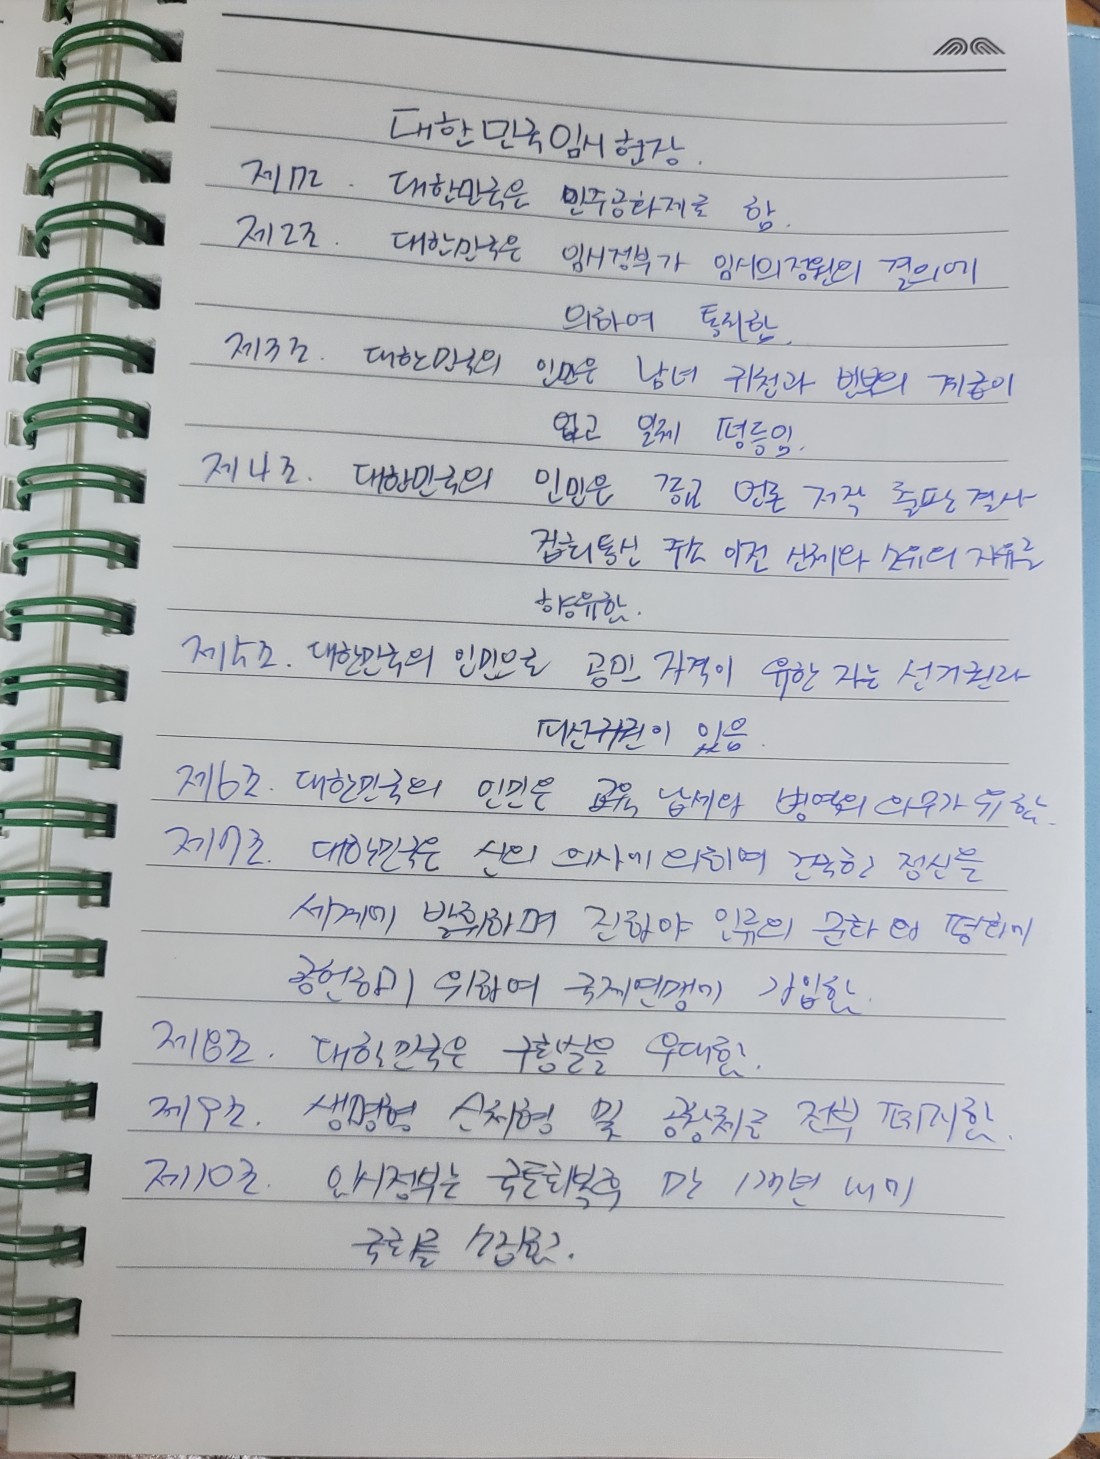 대한민국임시헌장.
제1조. 대한민국은 민주공화제로 함.
제2조. 대한민국은 임시정부가 임시의정원의 결의에
의하여 통치함.
제3조. 대한민국의 인민은 남녀 귀천과 빈부의 계급이
없고 일체 평등임.
제4조. 대한민국의 인민은 종교 언론 저작 출판 결사
집회 통신 주소 이전 신체와 소유의 자유를
향유함.
제5조. 대한민국의 인민으로 공민 자격이 유한 자는 선거권과
피선거권이 있음.
제6조. 대한민국의 인민은 교육 납세와 병역의 의무가 유함.
제7조. 대한민국은 신의 의사에 의하여 건국한 정신을
세계에 발휘하며 진하야 인류의 문화 및 평화에
공헌하기 위하여 국제연맹에 가입함.
제8조. 대한민국은 구황실을 우대함.
제9조. 생명형 신체형 및 공창제를 전부 폐지함.
제10조. 임시정부는 국토회복후 만 1개년 내에
국회를 소집함.